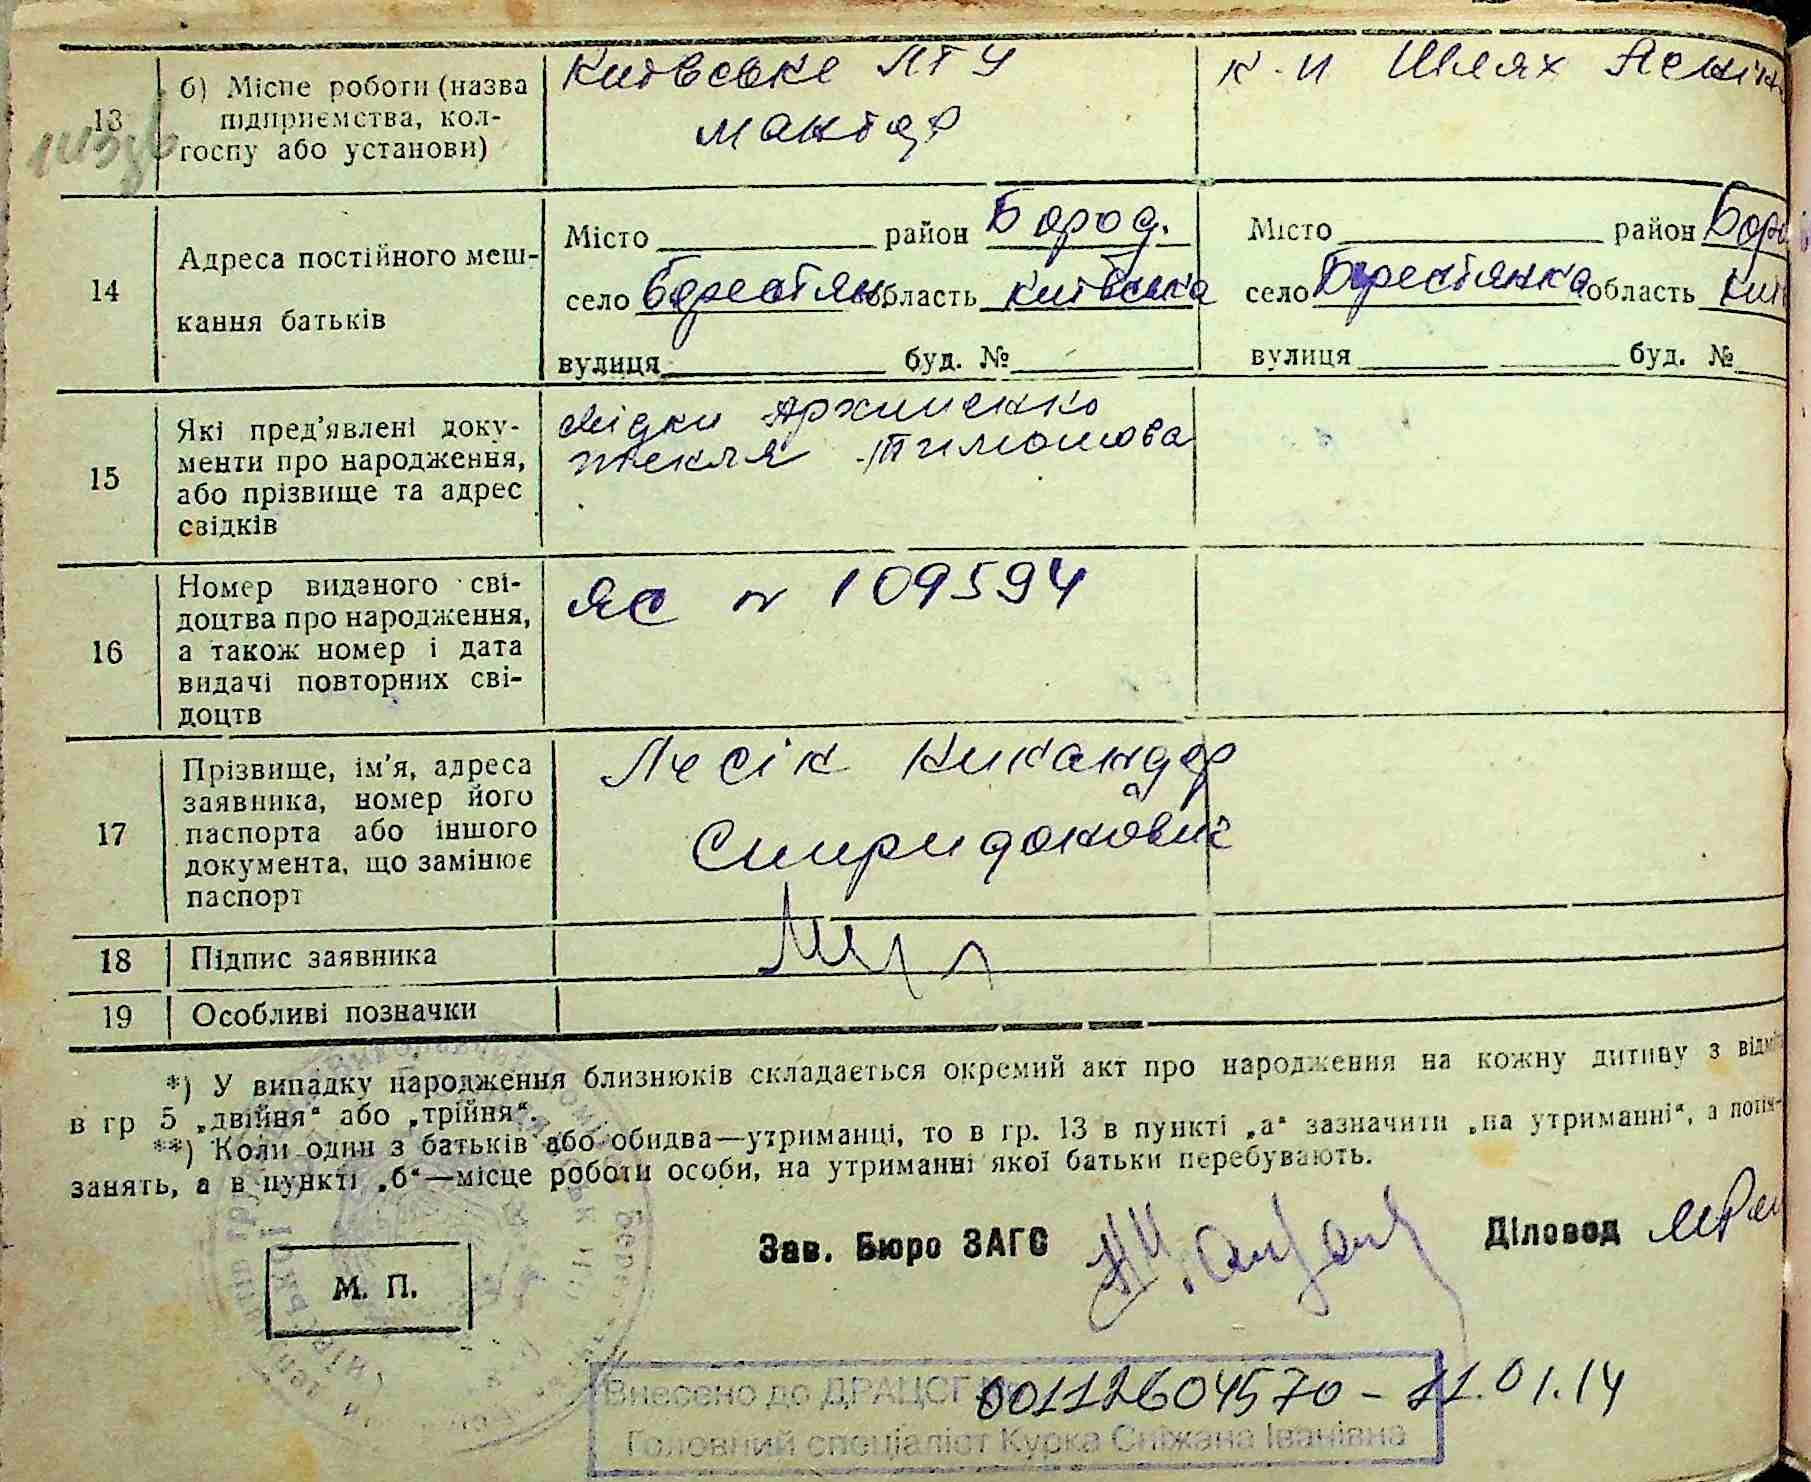 13
б) Місце роботи (назва
підприємства, кол-
госпу або установи)
Київське ЛТУ
монтер
к-п Шлях Леніна
14
Адреса постійного меш-
кання батьків
Місто район Бород.
село Берестян. область Київська
вулиця буд. №
Місто район Бор
село Берестянка область Киї
вулиця буд. №
15
Які пред'явлені доку-
менти про народження,
або прізвище та адрес
свідків
свідки Архипенко
Текля Тимошова
16
Номер виданого сві-
доцтва про народження,
а також номер і дата
видачі повторних сві-
доцтв
ЯС № 109594
17
Прізвище, ім'я, адреса
заявника, номер його
паспорта або іншого
документа, що замінює
паспорт
Лесік Никандор
Спиридонович
18 Підпис заявника
19 Особливі позначки
*) У випадку народження близнюків складається окремий акт про народження на кожну дитину з відмі
в гр 5 „двійня“ або „трійня“.
**) Коли один з батьків або обидва—утриманці, то в гр. 13 в пункті „а“ зазначити „на утриманні“, а
занять, а в пункті „б“—місце роботи особи, на утриманні якої батьки перебувають.
Зав. Бюро ЗАГС
Діловод
М. П.
Внесено до ДРАЦСГ № 00112604570 - 21.01.14
Головний спеціаліст Курка Сніжана Іванівна